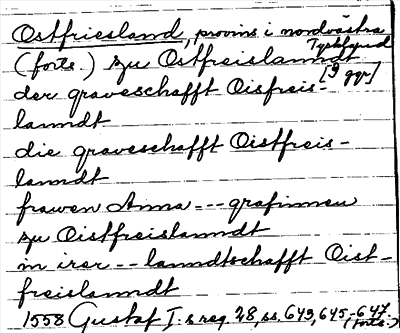 Ostfriesland, provins i nordvästra
Tyskland
(forts.) zu Ostfreislanndt
[9 ggr]
der graveschafft Oisfreis-
lanndt
die graveschafft Oistfreis-
lanndt
frawen Anna --- grafinnen
zu Oistfreislanndt
in irer -- lanndtschafft Oist-
freislanndt
1558 Gustaf I:s reg. 28, ss. 643, 645-647.
(forts.)